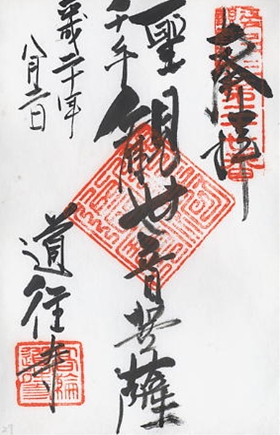 奉拝
聖観世音菩薩
千手
平成二十年
八月六日
道往寺